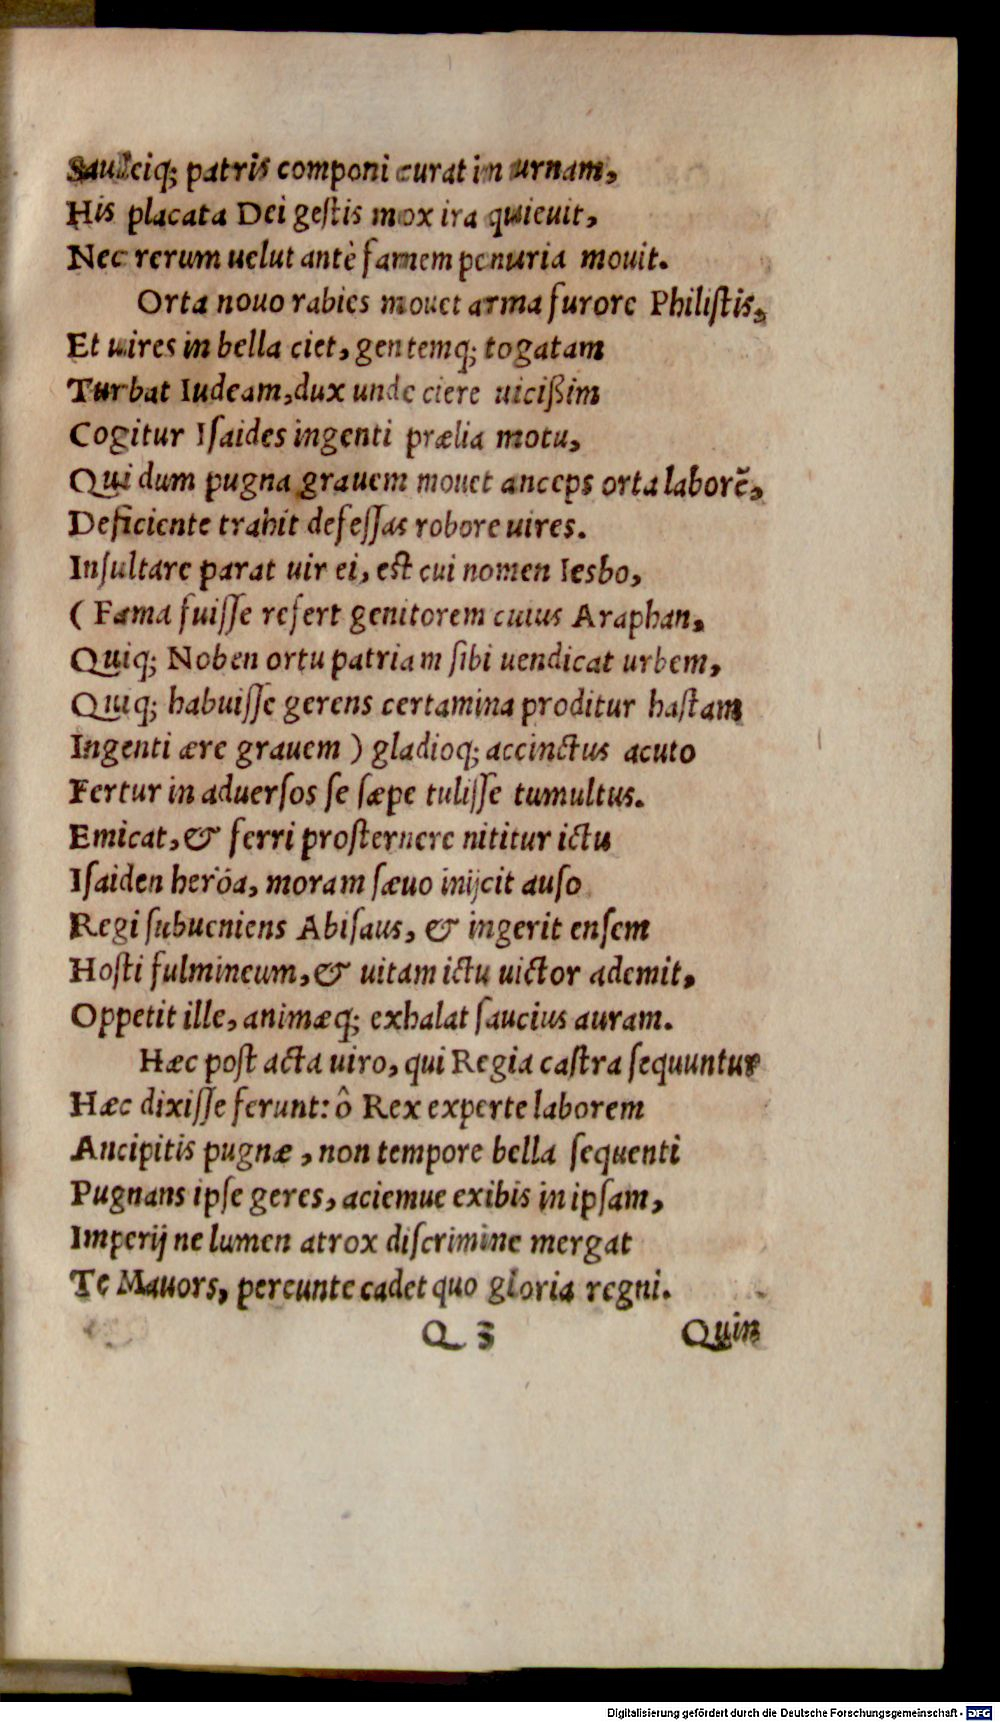 Sauleiq; patris componi curat in urnam,
His placata Dei geſtis mox ira quieuit,
Nec rerum uelut antè famem penuria mouit.
Orta nouo rabies mouet arma furore Philiſtis,
Et uires in bella ciet, gentemq; togatam
Turbat Iudeam, dux unde ciere uicißim
Cogitur Iſaides ingenti prælia motu,
Qui dum pugna grauem mouet anceps orta laborē,
Deficiente trahit defeſſas robore uires.
Inſultare parat uir ei, eſt cui nomen Iesbo,
(Fama fuiſſe refert genitorem cuius Araphan,
Quiq; Noben ortu patriam ſibi uendicat urbem,
Quiq; habuiſſe gerens certamina proditur haſtam
Ingenti ære grauem) gladioq; accinctus acuto
Fertur in aduerſos ſe ſæpe tuliſſe tumultus.
Emicat, & ferri proſternere nititur ictu
Iſaiden heröa, moram ſæuo inijcit auſo
Regi ſubueniens Abiſaus, & ingerit enſem
Hoſti fulmineum, & uitam ictu uictor ademit,
Oppetit ille, animæq; exhalat ſaucius auram.
Hæc poſt acta uiro, qui Regia caſtra ſequuntur
Hæc dixiſſe ferunt: ô Rex experte laborem
Ancipitis pugnæ, non tempore bella ſequenti
Pugnans ipſe geres, aciemue exibis in ipſam,
Imperij ne lumen atrox diſcrimine mergat
Te Mauors, pereunte cadet quo gloria regni.
Q 3 Quin
Digitalisierung gefördert durch die Deutsche Forschungsgemeinschaft - DFG